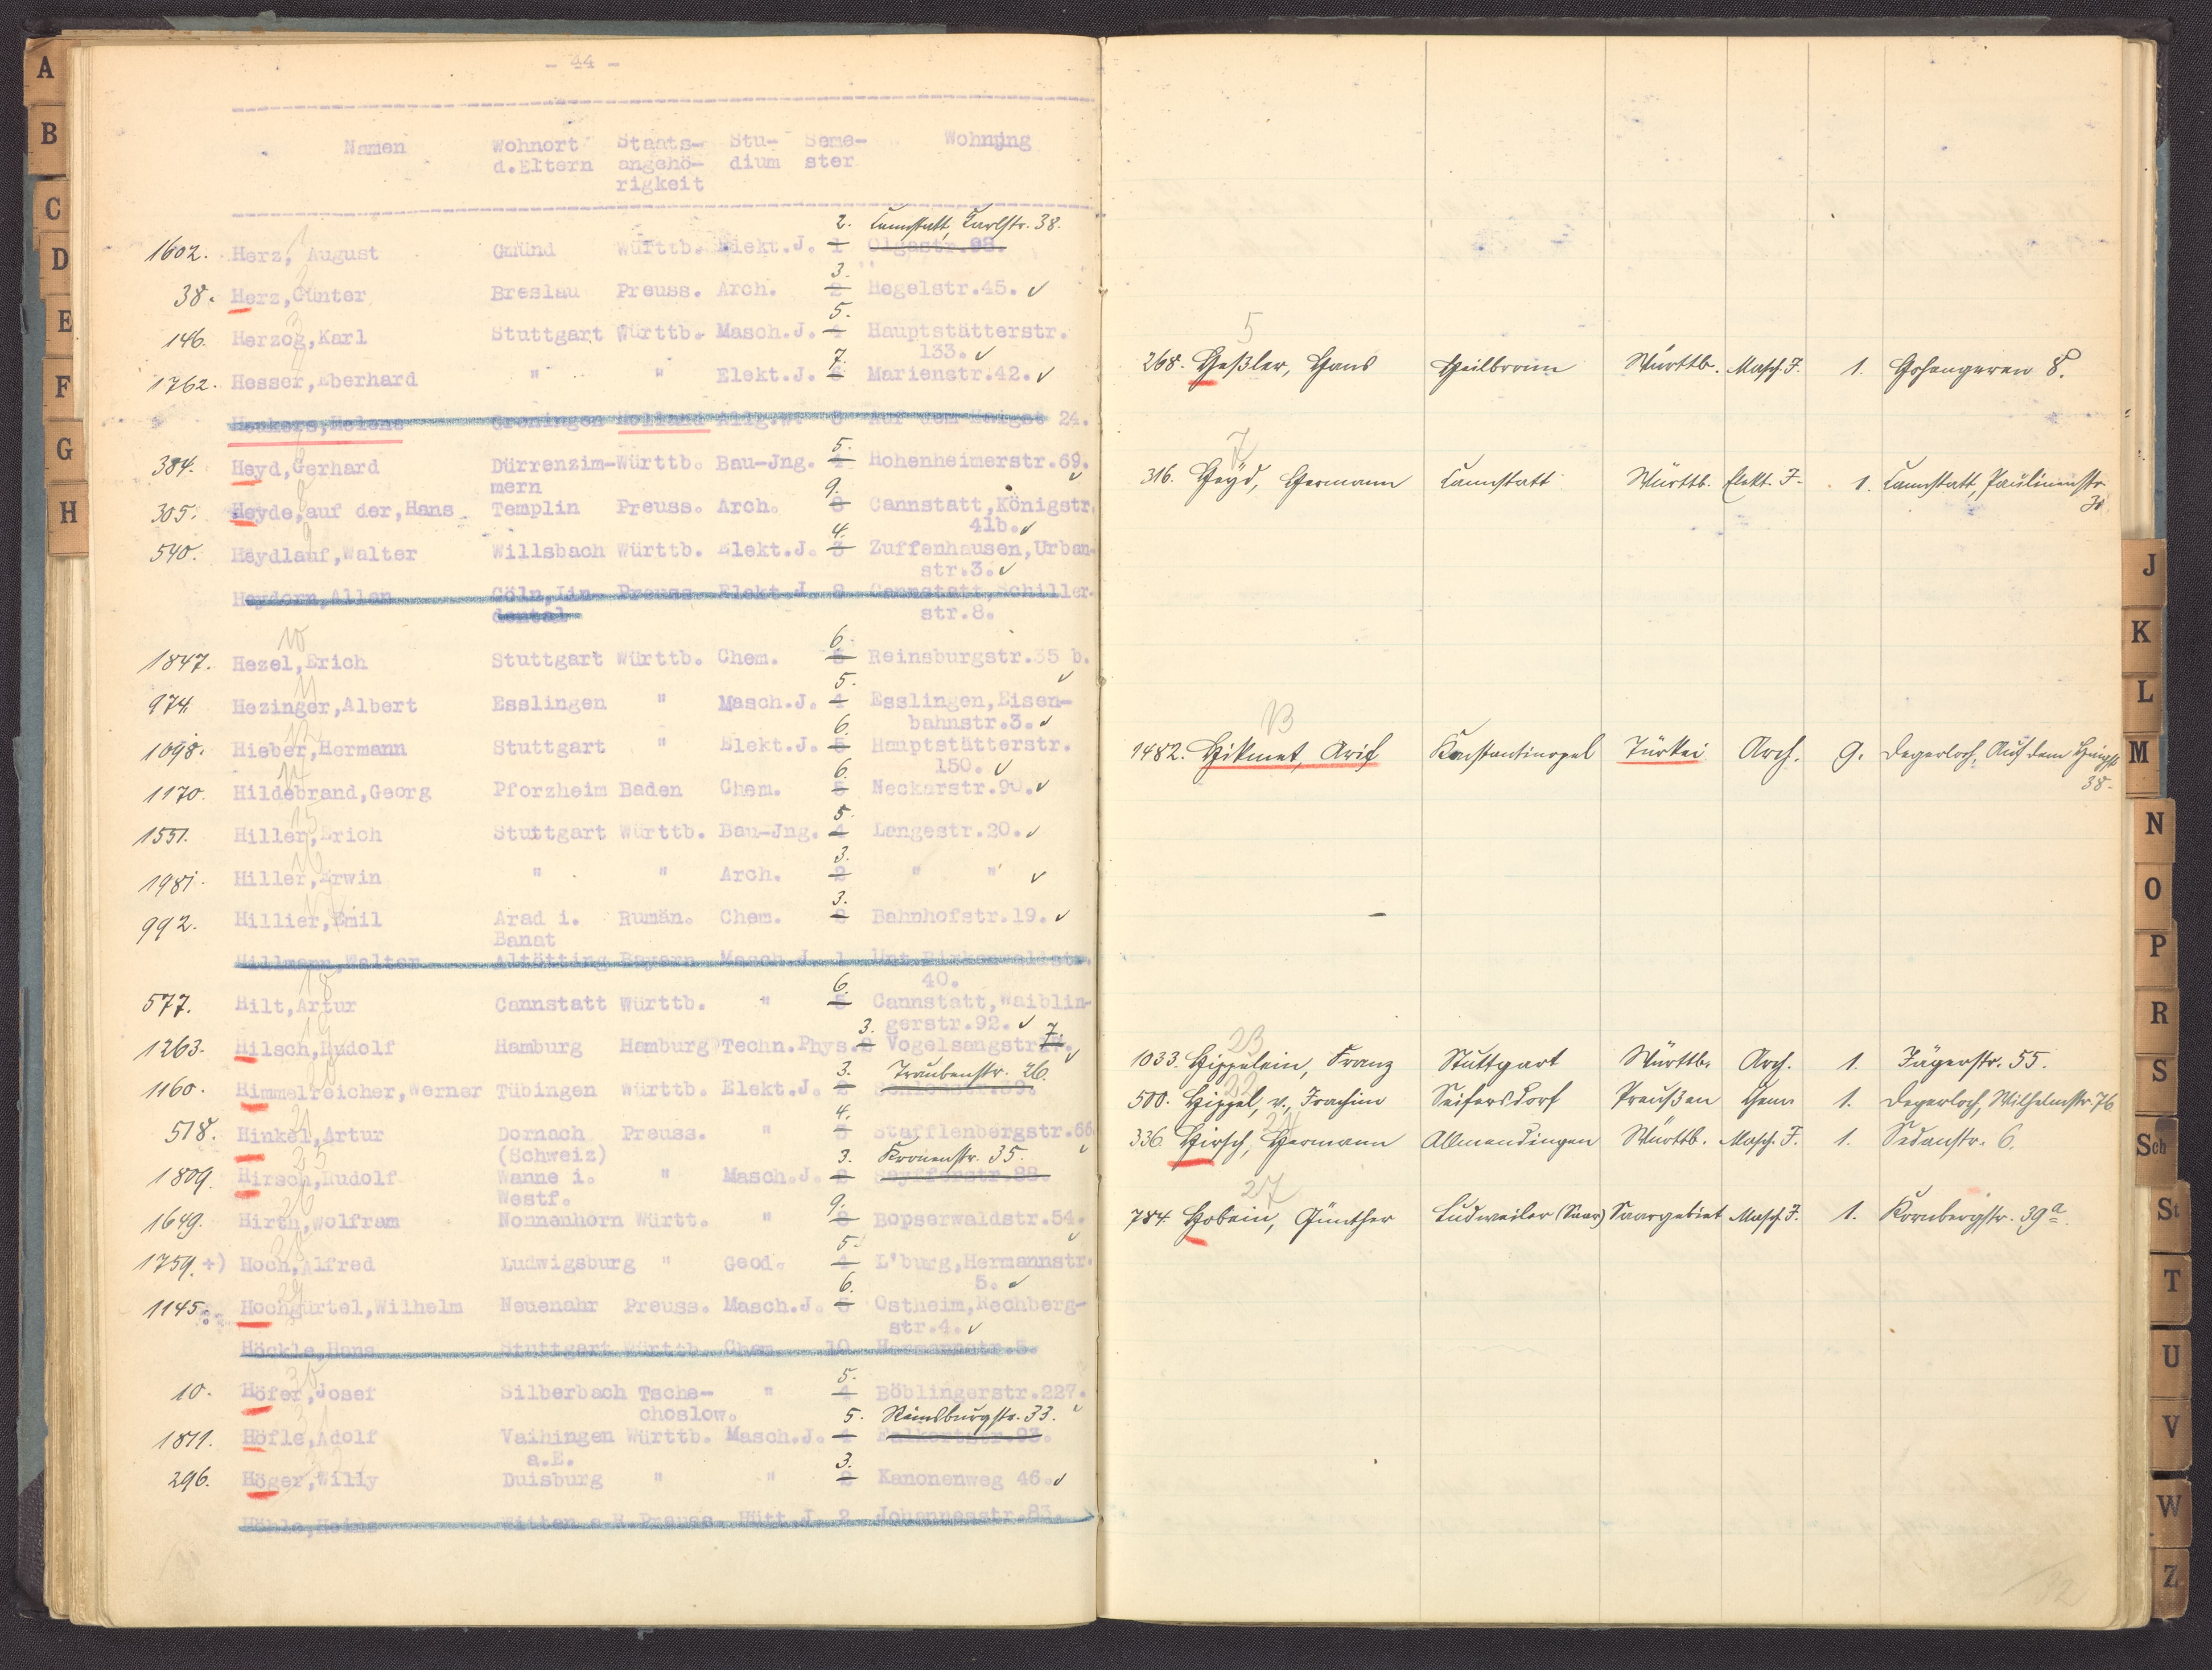 - 44 -
Namen Wohnort Staats- Stu- Seme- Wohnung
d.Eltern angehö- dium ster
rigkeit
2. Cannstatt, Karlstr. 38.
1602. Herz, August Gmünd Württb. Elekt.J. 1 Olgastr.98.
3.
38. Herz,Günter Breslau Preuss. Arch. 2 Hegelstr.45.
5.
146. Herzog,Karl Stuttgart Württb. Masch.J. 4 Hauptstätterstr.
7. 133.
1762. Hesser,Eberhard " " Elekt.J. 6 Marienstr.42.
Helene Groningen Holland Allg.W. 8 Auf dem Haigst 24.
5.
384. Heyd,Gerhard Dürrenzim- Württb. Bau-Jng. 4 Hohenheimerstr.69.
mern 9.
305. Heyde,auf der,Hans Templin Preuss. Arch. 8 Cannstatt,Königstr.
4. 41b.
540. Heydlauf,Walter Willsbach Württb. Elekt.J. 3 Zuffenhausen,Urban-
str.3.
Heydorn,Allen Cöln,Lin- Preuss. Elekt.J. 8 Cannstatt,Schiller-
dental str.8.
10 6.
1847. Hezel,Erich Stuttgart Württb. Chem. 5 Reinsburgstr.35 b.
11 5.
974. Hezinger,Albert Esslingen " Masch.J. 4 Esslingen,Eisen-
12 6. bahnstr.3.
1098. Hieber,Hermann Stuttgart " Elekt.J. 5 Hauptstätterstr.
14 6. 150.
1170. Hildebrand,Georg Pforzheim Baden Chem. 5 Neckarstr.90.
15 5.
1551. Hiller,Erich Stuttgart Württb. Bau-Jng. 4 Langestr.20.
16 3.
1981. Hiller,Erwin " " Arch. 2 " "
17 3.
992. Hillier,Emil Arad i. Rumän. Chem. 2 Bahnhofstr.19.
Banat
Hillmann,Walter Altötting Bayern Masch.J. 1 Unt.Birkenwaldstr.
18 6. 40.
577. Hilt,Artur Cannstatt Württb. " 5 Cannstatt,Waiblin-
19 3. gerstr.92. 7.
1263. Hilsch,Rudolf Hamburg Hamburg Techn.Phys. 2 Vogelsangstr.
20 3. Traubenstr. 26.
1160. Himmelreicher,Werner Tübingen Württb. Elekt.J. 2 Schlosstr.39.
21 4.
518. Hinkel,Artur Dornach Preuss. " 3 Stafflenbergstr.66
25 (Schweiz) 3. Kronenstr. 35.
1809. Hirsch,Rudolf Wanne i. " Masch.J. 2 Seyfferstr.88.
26 Westf. 9.
1649. Hirth,Wolfram Nonnenhorn Württ. " 8 Bopserwaldstr.54.
28 5.
1759.+) Hoch,Alfred Ludwigsburg " Geod. 4 L'burg,Hermannstr.
29 6. 5.
1145. Hochgürtel,Wilhelm Neuenahr Preuss. Masch.J. 5 Ostheim,Rechberg-
str.4.
Höckle,Hans Stuttgart Württb. Chem. 10 Hermannstr.5.
30 5.
10. Höfer,Josef Silberbach Tsche- " 4 Böblingerstr.227.
choslow. 5. Reinsburgstr. 33.
1811. Höfle,Adolf Vaihingen Württb. Masch.J. 4 Falkertstr.93.
a.E. 3.
296. Höger,Willy Duisburg " " 2 Kanonenweg 46.
Witten a.R. Preuss. Hütt.J. 2 Johannesstr.83.
5
268. Heßler, Hans Heilbronn Württb. Masch.J. 1. Hohengeren 8.
7
316. Heyd, Hermann Cannstatt Württb. Elekt. J. 1. Cannstatt, Paulinenstr.
13
1482. Hikmet, Arif Konstantinopel Türkei Arch. 9. Degerloch, Auf dem Haigst
38.
23
1033. Hippelein, Franz Stuttgart Württb. Arch. 1. Jägerstr. 55.
22
500. Hippel, v., Joachim Seifersdorf Preußen Chem. 1. Degerloch, Wilhelmstr. 76
24
336. Hirsch, Hermann Allmendingen Württb. Masch. J. 1. Sedanstr. 6.
27
784. Hobein, Günther Ludweiler (Saar) Saargebiet Masch. J. 1. Kornbergstr. 39a.
A
B
C
D
E
F
G
H
J
K
L
M
N
O
P
R
S
Sch
St
T
U
V
W
Z